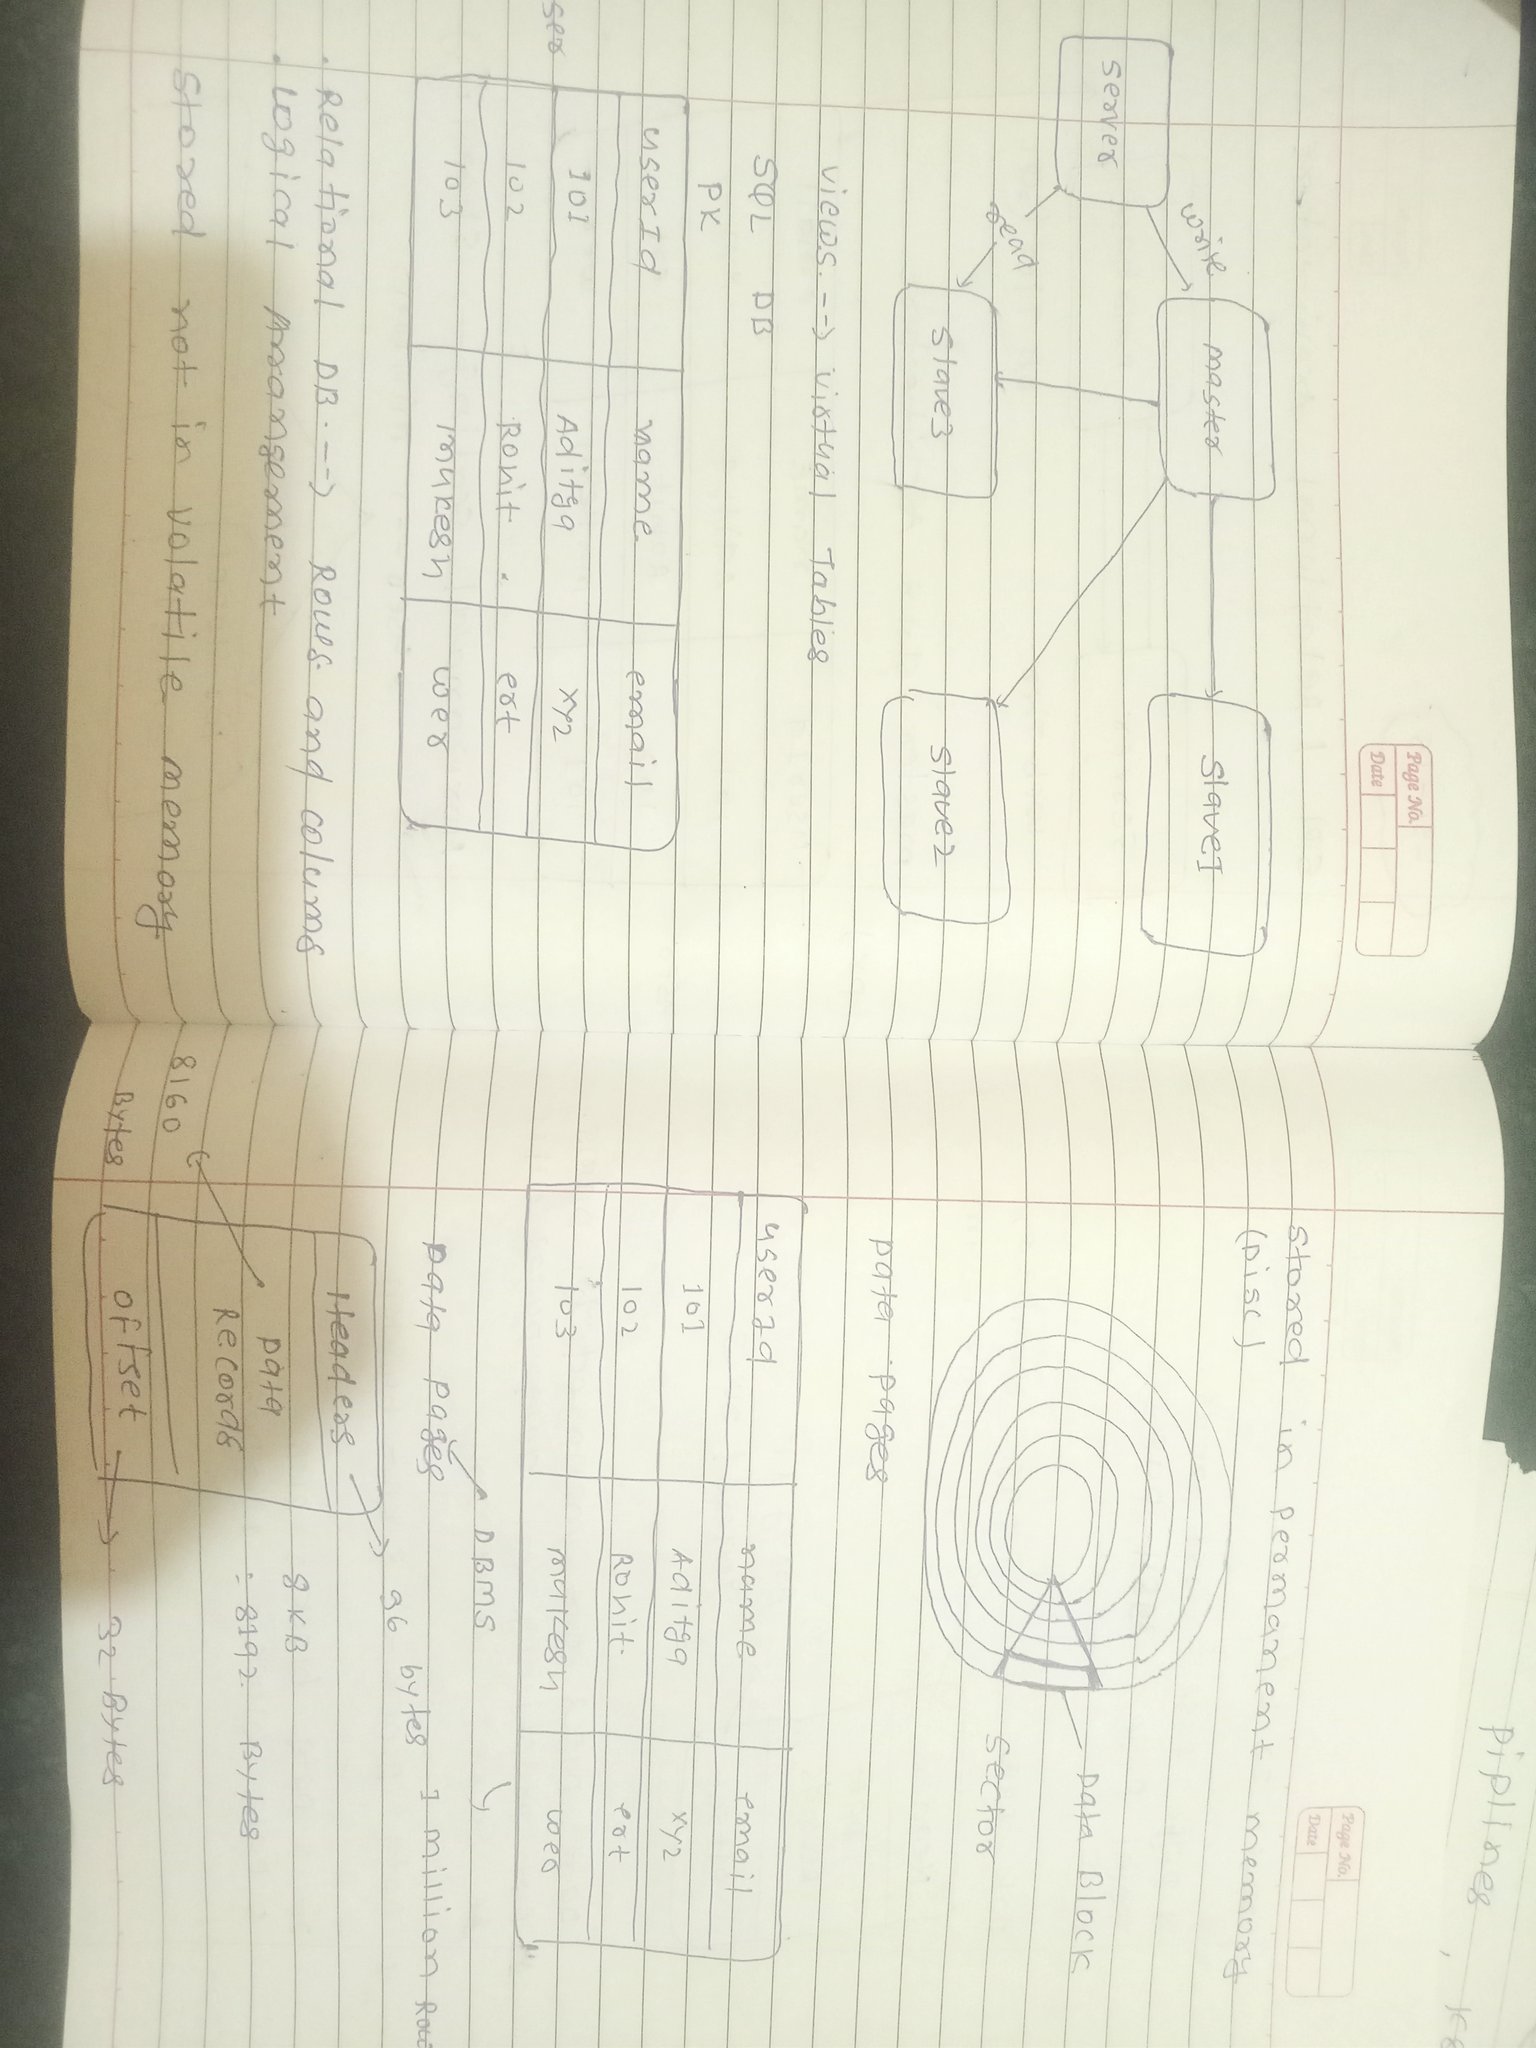 Page No.
Date
Server
write
Master
Slave1
read
Slave3
Slave2
views. --> virtual Tables
SQL DB
PK
userId name email
101 Aditya xyz
102 Ronit. ert
103 mukesh wer
ser
. Relational DB. --> Rows and colums
. Logical Arrangement
Stored not in volatile memory
piplines,
Page No.
Date
Stored in permanent memory
(Disc)
Data Block
Sector
Data pages
userId name email
101 Aditya xyz
102 Ronit ert
103 mukesh wer
DBMS
Data pages
1 million Row
Headers
96 bytes
Data
Records
8 KB
: 8192 Bytes
8160
Bytes
offset
32 Bytes